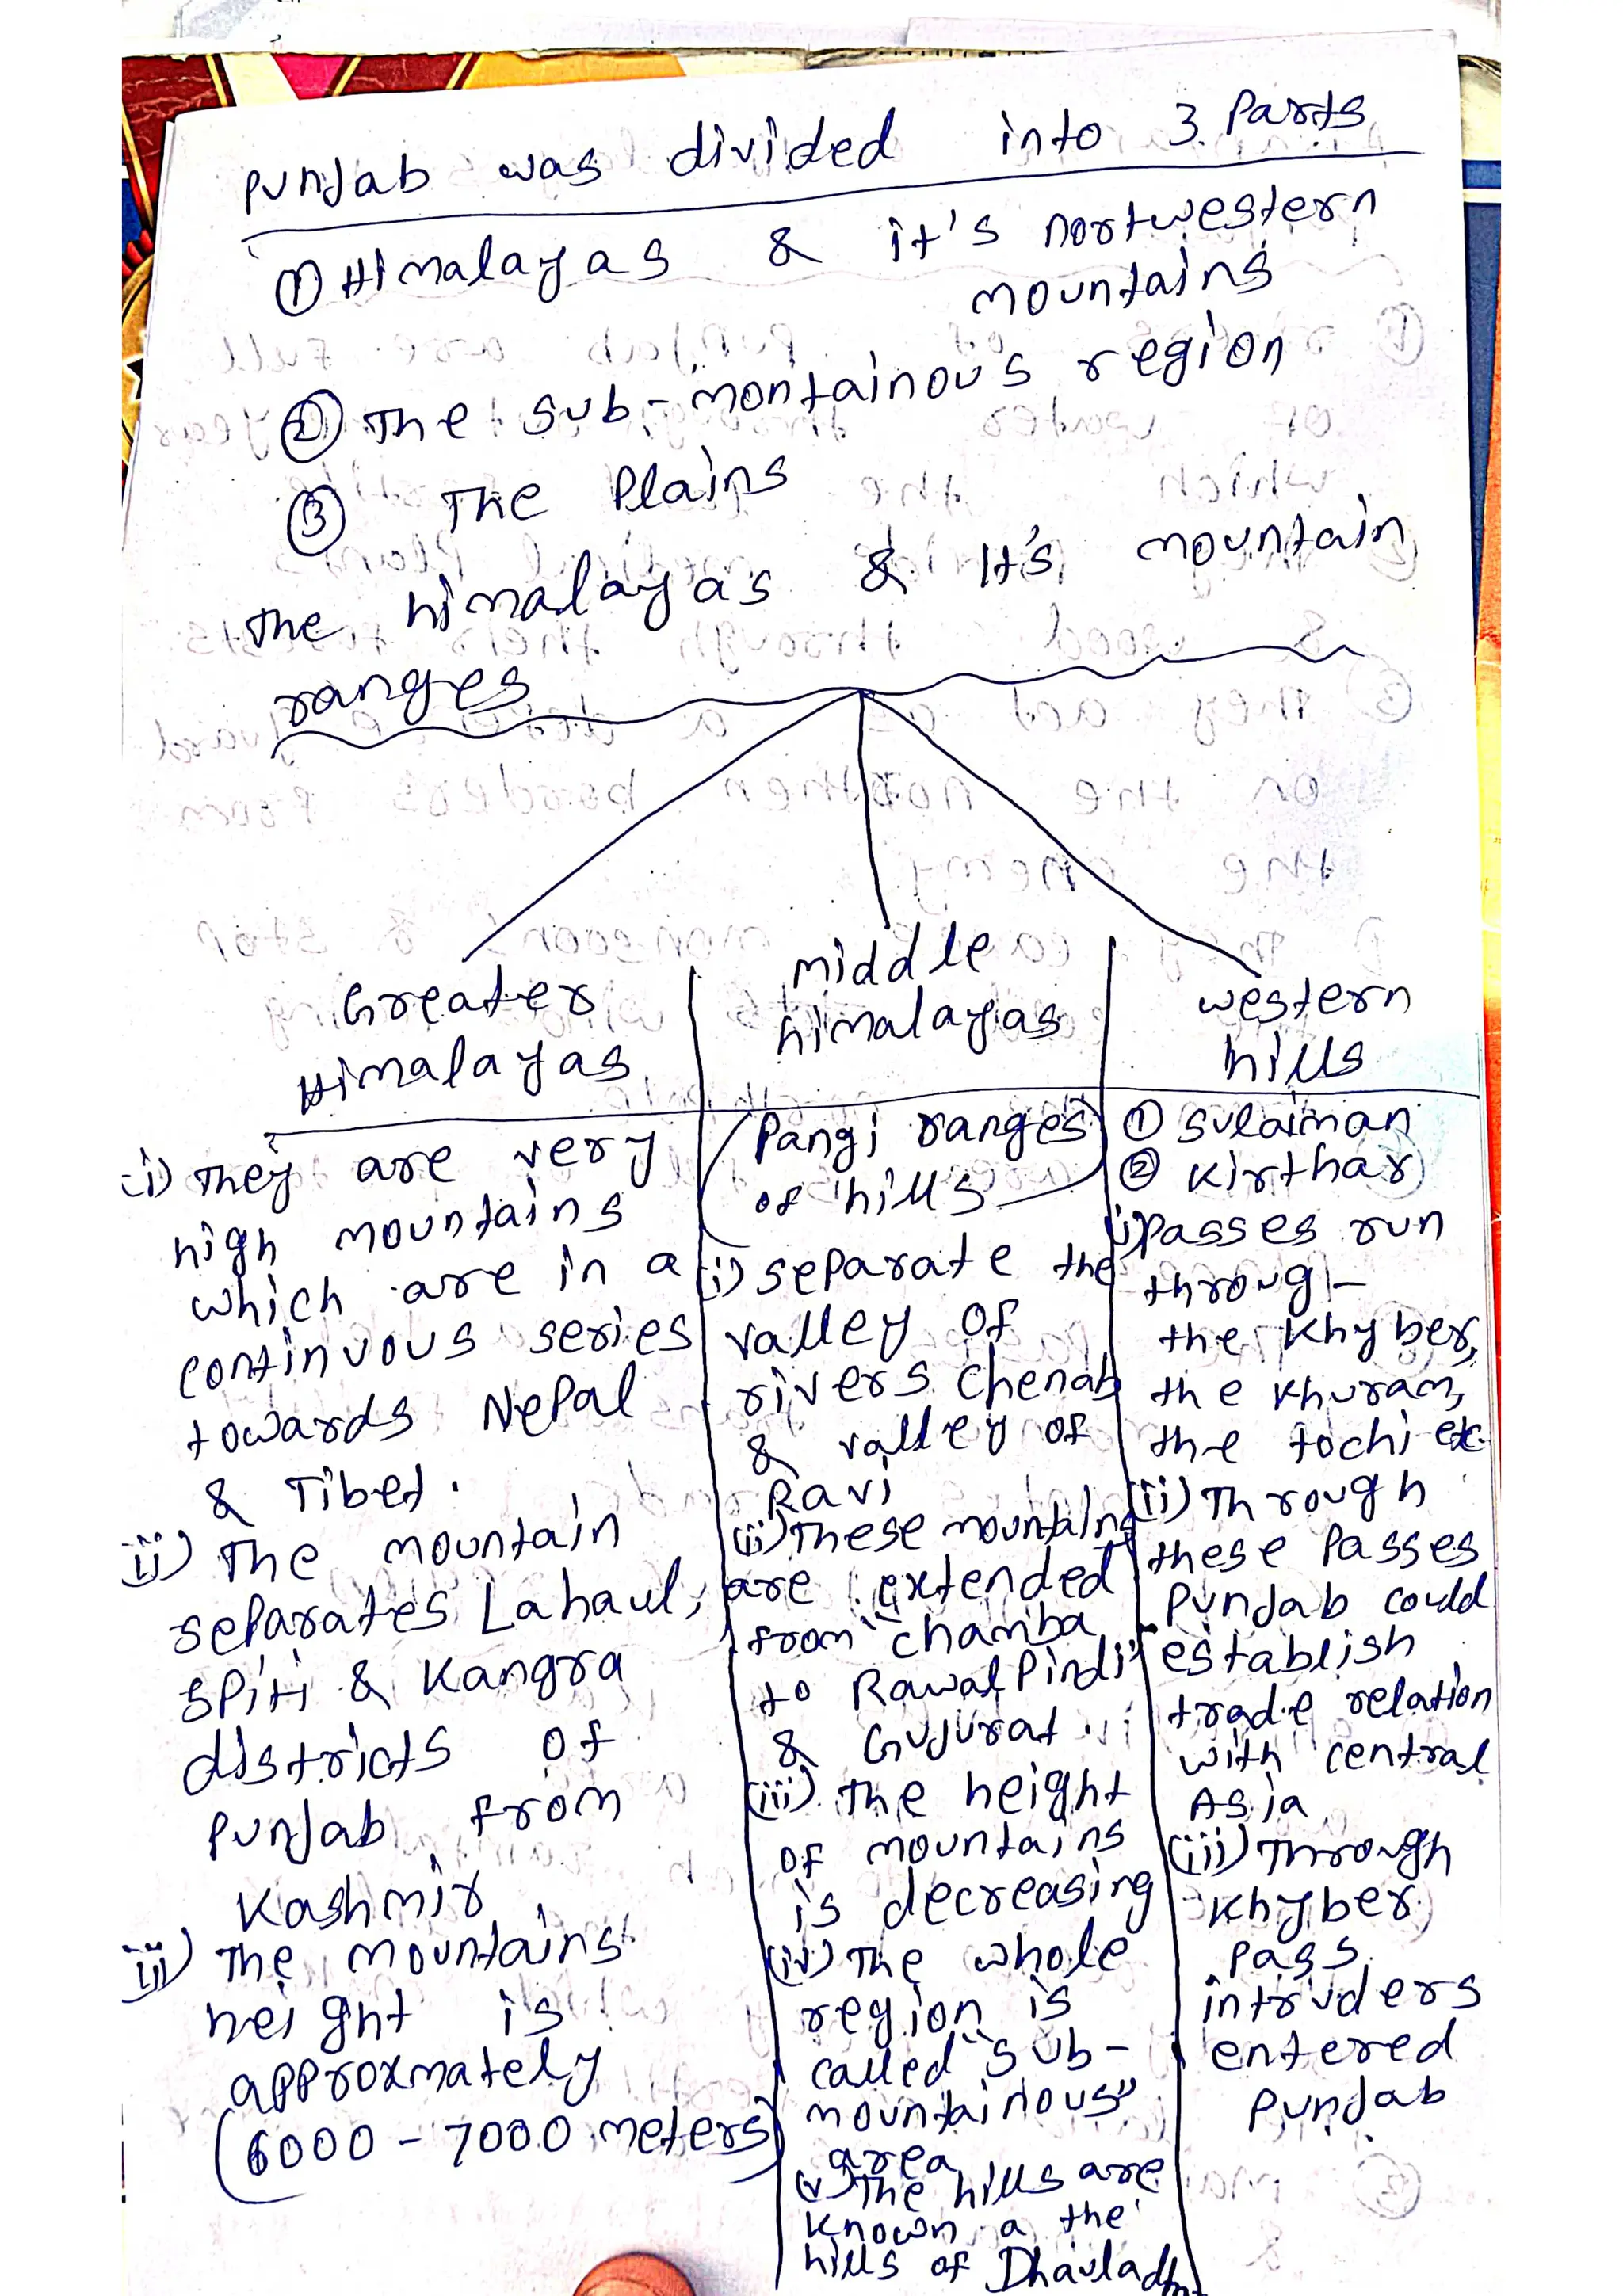 Punjab was divided into 3 Parts
① Himalayas & it's nortwestern
mountains
② The sub-montainous region
③ The Plains
The himalayas & It's mountain
ranges
Greater
Himalayas
i) They are very
high mountains
which are in a
continuous series
towards Nepal
& Tibet.
ii) The mountain
separates Lahaul,
Spiti & Kangra
districts of
Punjab from
Kashmir
iii) The mountains
height is
approxmately
(6000 - 7000 meters)
middle
himalayas
(Pangi ranges
of hills)
(i) separate the
valley of
rivers Chenab
& valley of
Ravi
(ii) These mountains
are extended
from chamba
to RawalPindi
& Gujurat
(iii) The height
of mountains
is decreasing
(iv) The whole
region is
called "sub-
mountainous"
area
(v) The hills are
known a the
hills of Dhauladhar
western
hills
① Sulaiman
② Kirthar
i) Passes run
throug-
the Khyber,
the Khuram,
the tochi etc
(ii) Through
these Passes
Punjab could
establish
trade relation
with central
Asia
(iii) Through
Khyber
Pass
intruders
entered
Punjab